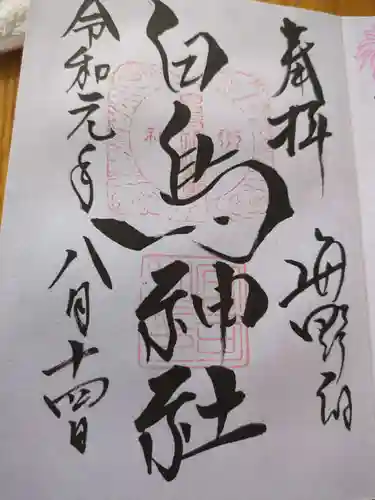 奉拝
海野宿
白鳥神社
令和元年
八月十四日